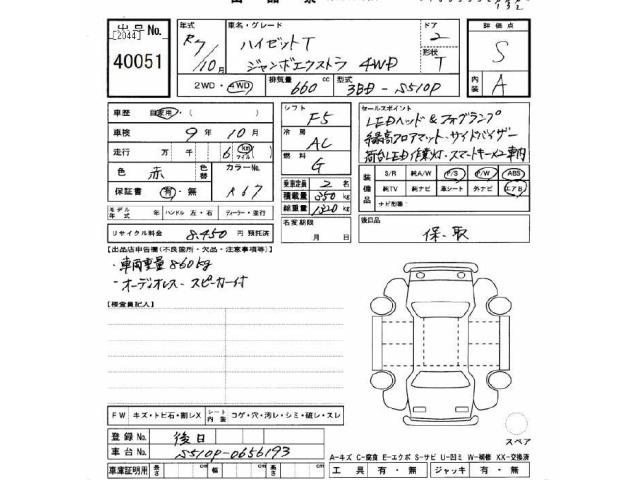 出品票
出品No. [2044] 40051
年式 R7/10月
車名・グレード ハイゼットT ジャンボエクストラ 4WD
ドア 2
形状 T
評価点 S
内装 A
2WD・4WD
排気量 660 cc
型式 3BD-S510P
車歴 自家用・
車検 9年10月
走行 万 千 6 km マイル
色 赤 色替
カラーNo. R67
保証書 有・無
モデル年式 年 ハンドル 左・右 ディーラー・並行
リサイクル料金 8,450 円 預託済
シフト F5
冷房 AC
燃料 G
乗車定員 2 名
積載量 350 kg
総重量 1320 kg
名変期限 月 日
セールスポイント
LEDヘッド&フォグランプ
縁高フロアマット・サイドバイザー
荷台LED作業灯・スマートキー×2 車内
装備品
S/R 純A/W P/S P/W ABS
純TV 純ナビ 革シート 外ナビ エアB
ナビ形番:
後日品
保、取
【出品店申告欄(不良箇所・欠品・注意事項等)】
・車両重量860kg
・オーディオレス-スピーカー付
【検査員記入】
FW キズ・トビ石・割レX シート内装 コゲ・穴・汚レ・シミ・破レ・スレ
登録No. 後日
車台No. S510P-0656193
車庫証明用 長さ cm 幅 cm 高さ cm
スペア
A-キズ C-腐食 E-エクボ S-サビ U-凹ミ W-補修 XX-交換済
工具 有・無 ジャッキ 有・無